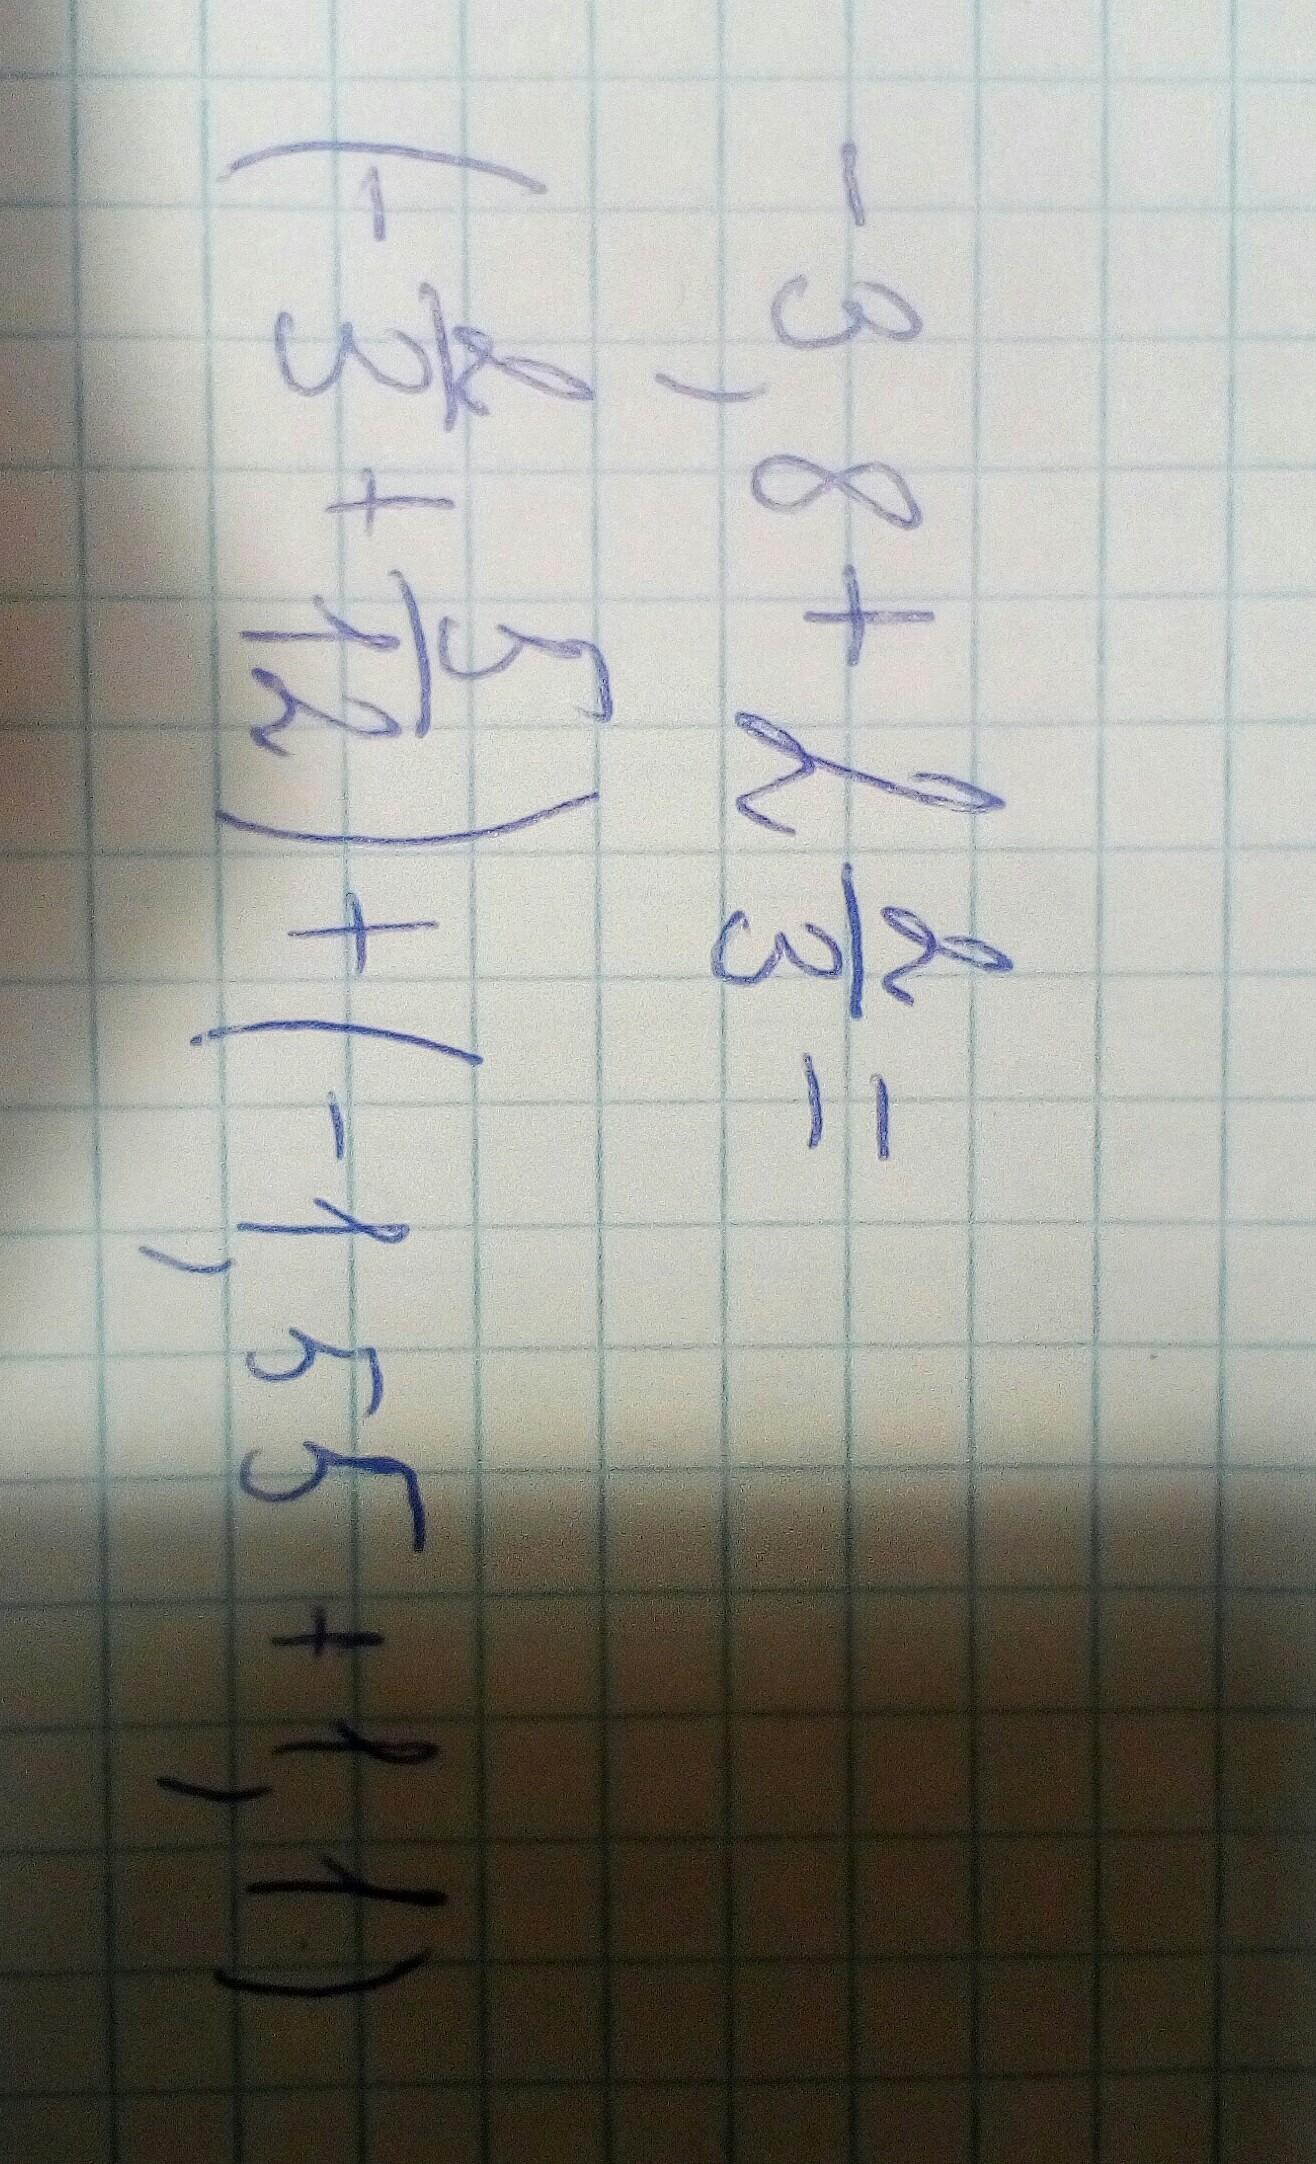 -3,8 + 2 2/3 =
(-2/3 + 5/12) + (-1,55 + 1,1)